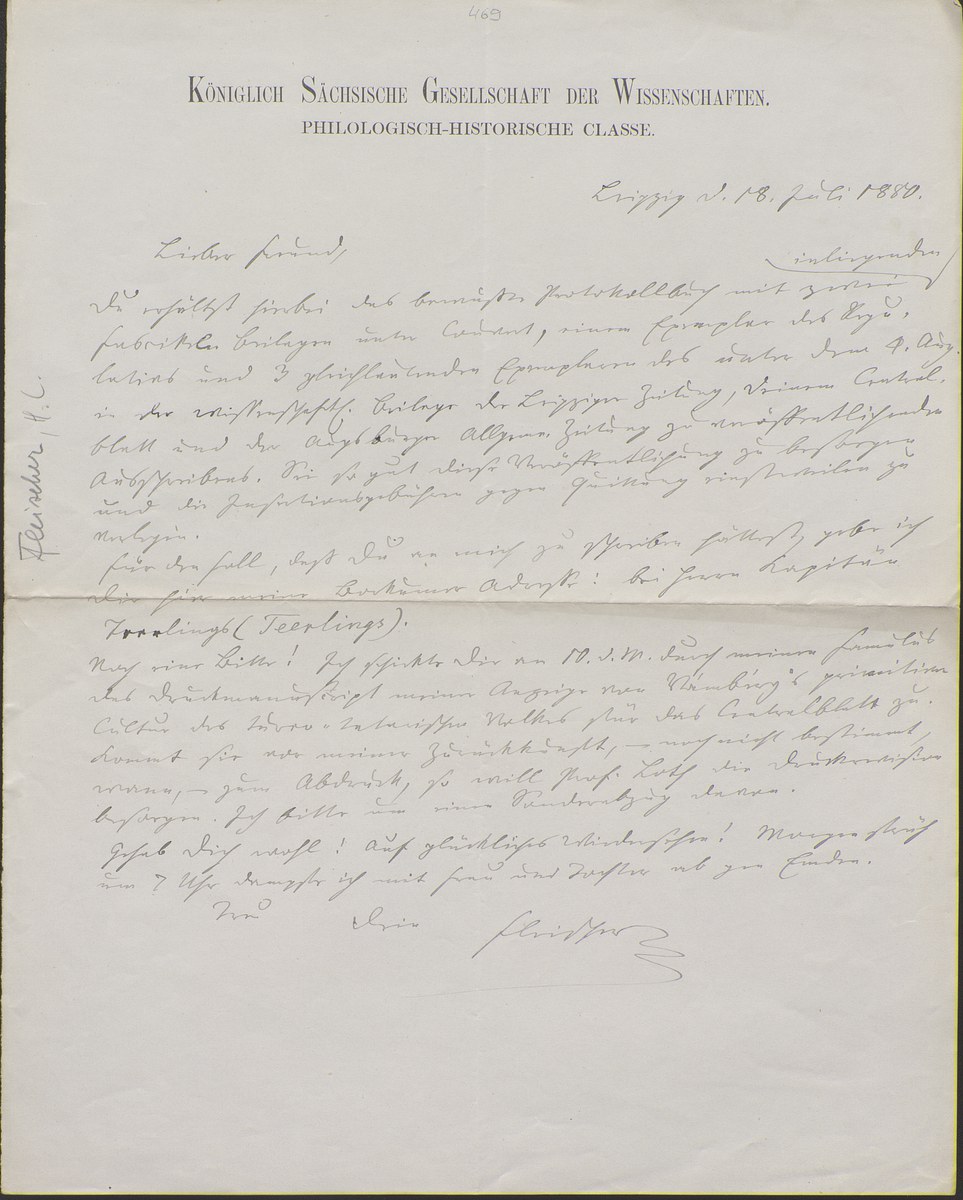 469
KÖNIGLICH SÄCHSISCHE GESELLSCHAFT DER WISSENSCHAFTEN.
PHILOLOGISCH-HISTORISCHE CLASSE.
Leipzig d. 18. Juli 1880.
Lieber Freund,
inliegenden
Du erhältst hierbei das bewußte Protokollbuch mit zwei
Fascikeln Beilagen unter Couvert, einem Exemplar des Regu-
lativs und 3 gleichlautenden Exemplaren des unter dem 4. Aug.
in der wissenschaftl. Beilage der Leipziger Zeitung, Deinem Central-
blatt und der Augsburger Allgem. Zeitung zu veröffentlichenden
Ausschreibens. Sei so gut diese Veröffentlichung zu besorgen
und die Insertionsgebühren gegen Quittung einstweilen zu
verlegen.
Für den Fall, daß Du an mich zu schreiben hättest, gebe ich
Dir hier meine Borkumer Adresse: bei Herrn Kapitän
Teerlings (Teerlings).
Noch eine Bitte! Ich schickte Dir am 10. d. M. durch meinen Famulus
das Druckmanuscript meiner Anzeige von Vámbéry's primitiver
Cultur des turco-tatarischen Volkes für das Centralblatt zu.
Kommt sie vor meiner Zurückkunft, – noch nicht bestimmt,
wann, – zum Abdruck, so will Prof. Loth die Druckrevision
besorgen. Ich bitte um einen Sonderabzug davon.
Gehab Dich wohl! Auf glückliches Wiedersehen! Morgen früh
um 7 Uhr dampfe ich mit Frau und Tochter ab gen Emden.
Treu Dein Fleischer
Fleischer, H. L.